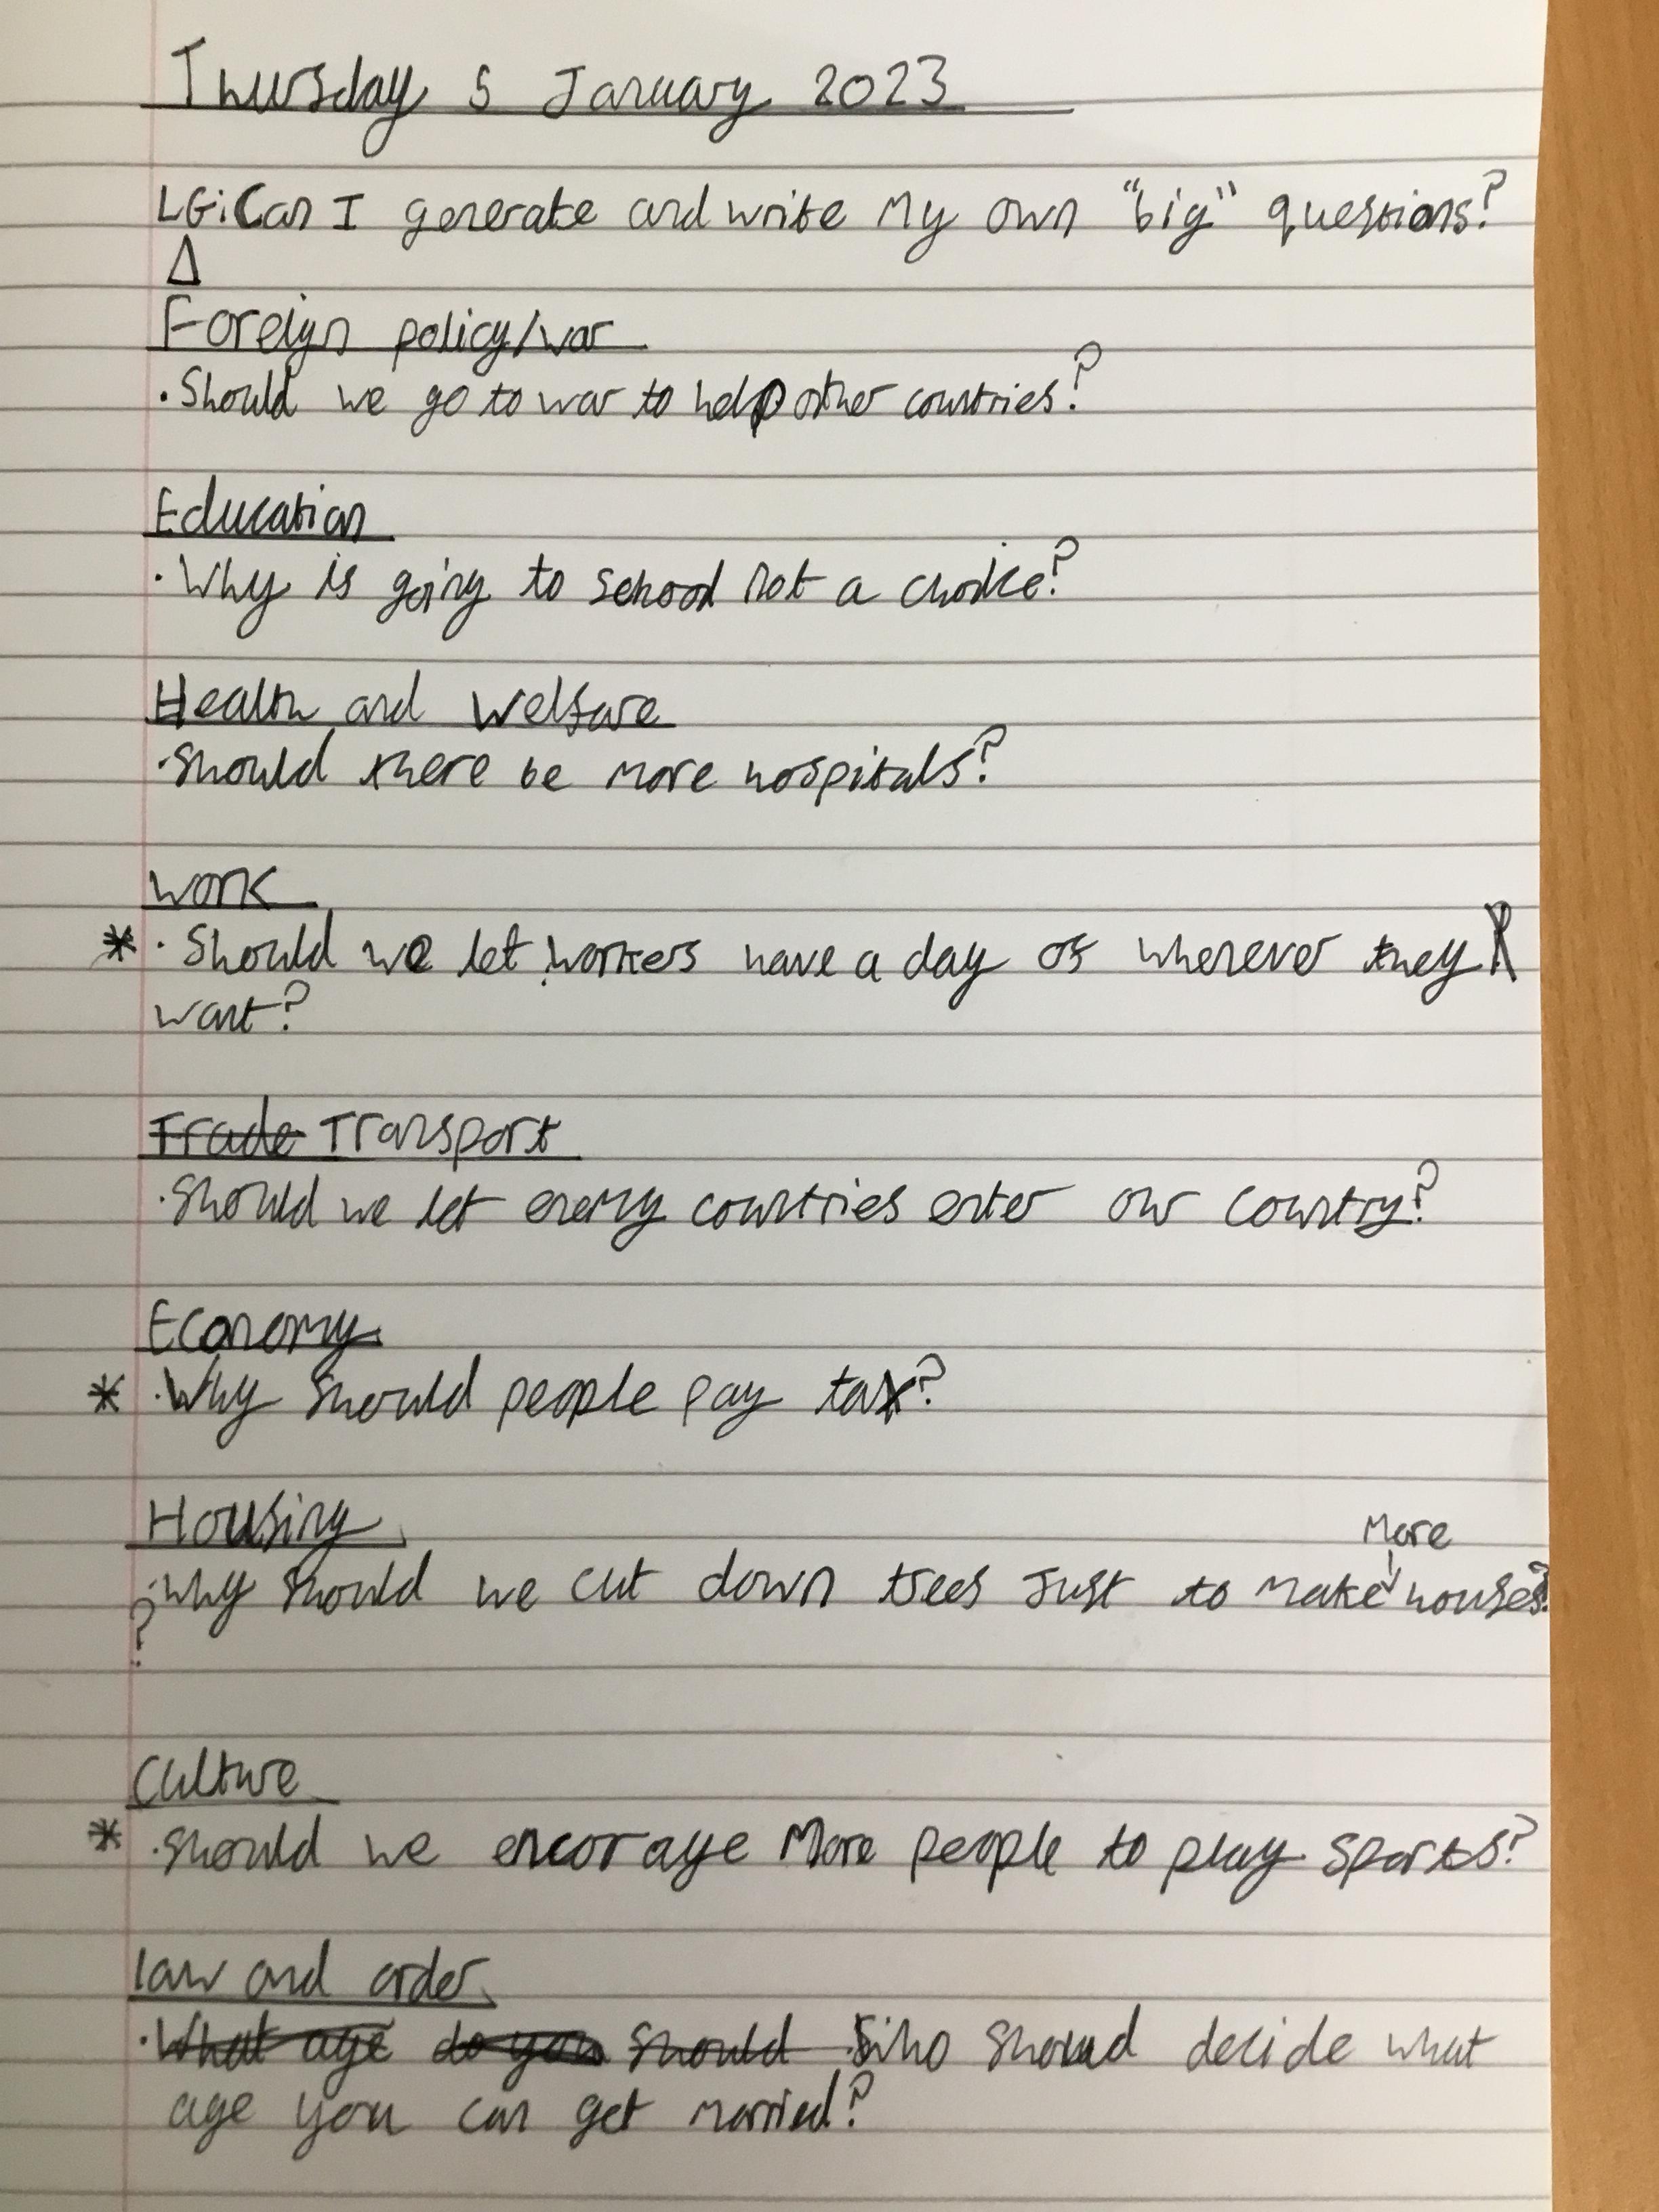 Thursday 5 January 2023
LG: Can I generate and write my own "big" questions?
Δ
Foreign policy/war
• Should we go to war to help other countries?
Education
• Why is going to school not a choice?
Health and Welfare
• Should there be more hospitals?
Work
* • Should we let workers have a day of wherever they
want?
Trade Transport
• Should we let enemy countries enter our country?
Economy
* • Why should people pay tax?
Housing
More
• Why should we cut down trees Just to make houses?
?
Culture
* • Should we encorage More people to play sports?
law and order
• What age do you should Who should decide what
age you can get married?